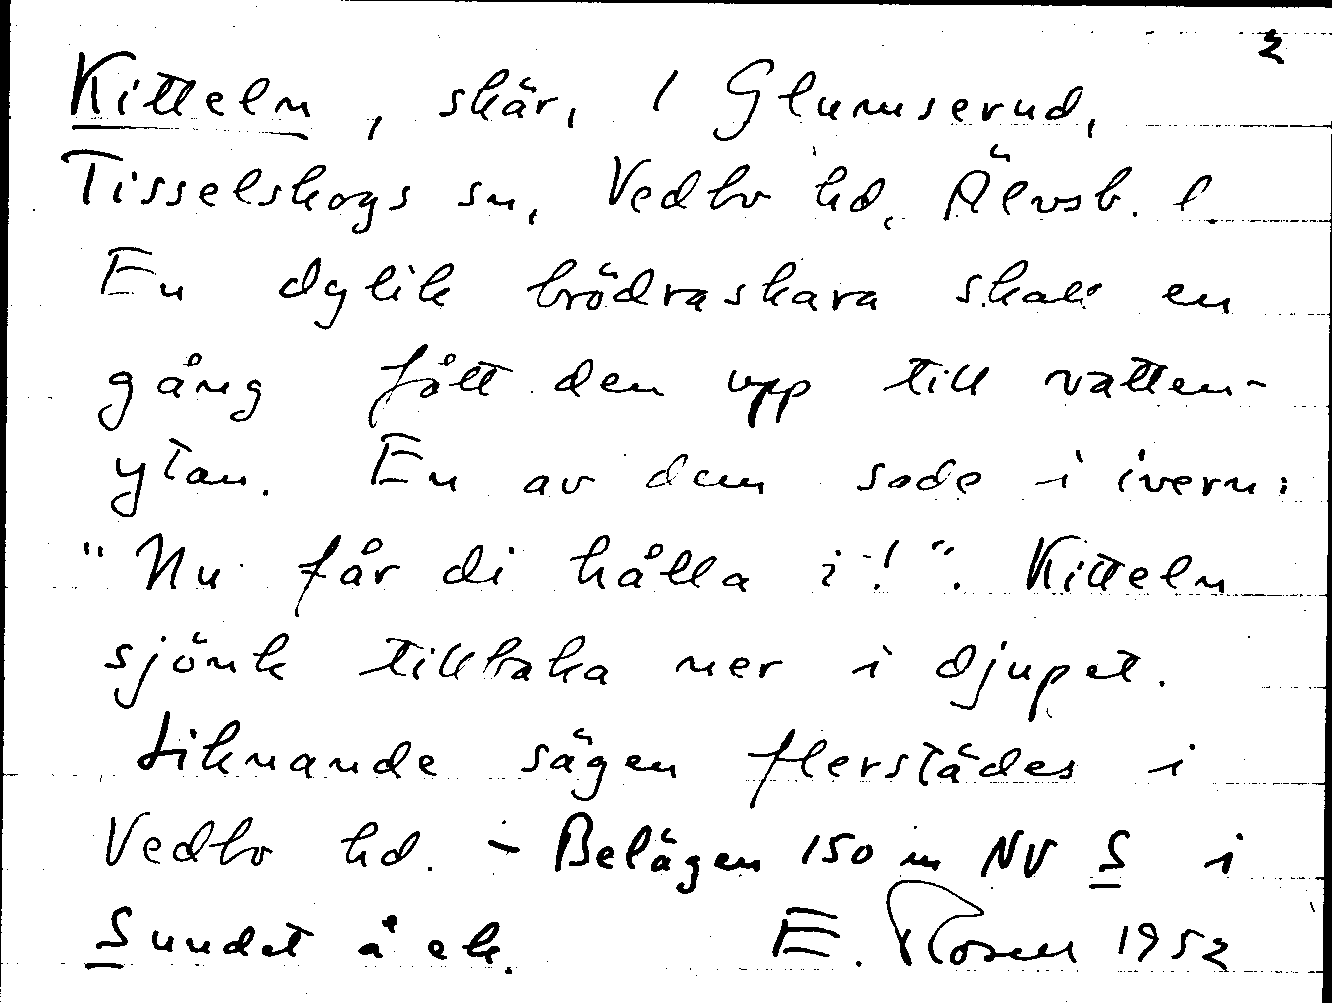 2
Kitteln, skär, / Glumserud,
Tisselskogs sn, Vedbo hd, Älvsb. l.
En dylik brödraskara skall en
gång fått den upp till vatten-
ytan. En av dem sade i ivern:
"Nu får di hålla i!". Kitteln
sjönk tillbaka ner i djupet.
Liknande sägen flerstädes i
Vedbo hd. - Belägen 150 m NV S i
Sundet å ek. E. Rosen 1952